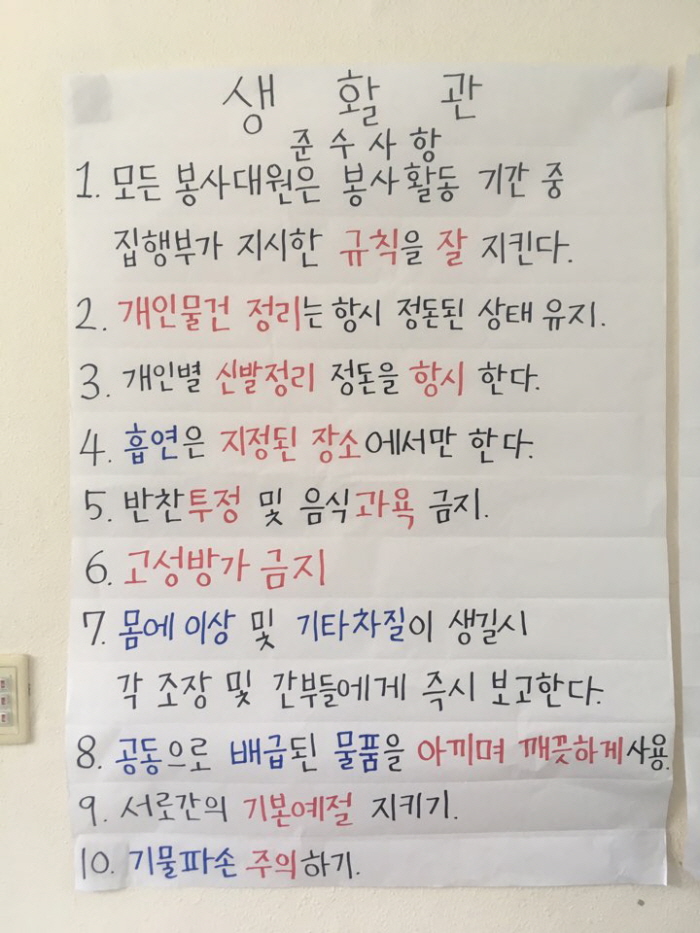 생 활 관
준 수 사 항
1. 모든 봉사대원은 봉사활동 기간 중
집행부가 지시한 규칙을 잘 지킨다.
2. 개인물건 정리는 항시 정돈된 상태 유지.
3. 개인별 신발정리 정돈을 항시 한다.
4. 흡연은 지정된 장소에서만 한다.
5. 반찬투정 및 음식과욕 금지.
6. 고성방가 금지
7. 몸에 이상 및 기타차질이 생길시
각 조장 및 간부들에게 즉시 보고한다.
8. 공동으로 배급된 물품을 아끼며 깨끗하게사용.
9. 서로간의 기본예절 지키기.
10. 기물파손 주의하기.